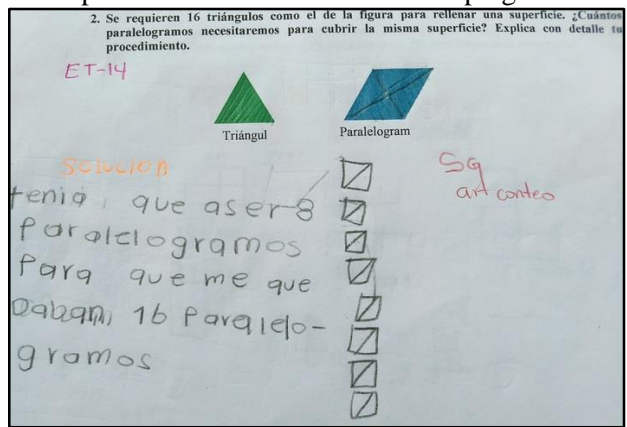 2. Se requieren 16 triángulos como el de la figura para rellenar una superficie. ¿Cuántos
paralelogramos necesitaremos para cubrir la misma superficie? Explica con detalle tu
procedimiento.
ET-14
Triángul
Paralelogram
SOLUCION
tenia que aser 8
Paralelogramos
Para que me que
Daban 16 Paralelo-
gramos
SG
art conteo